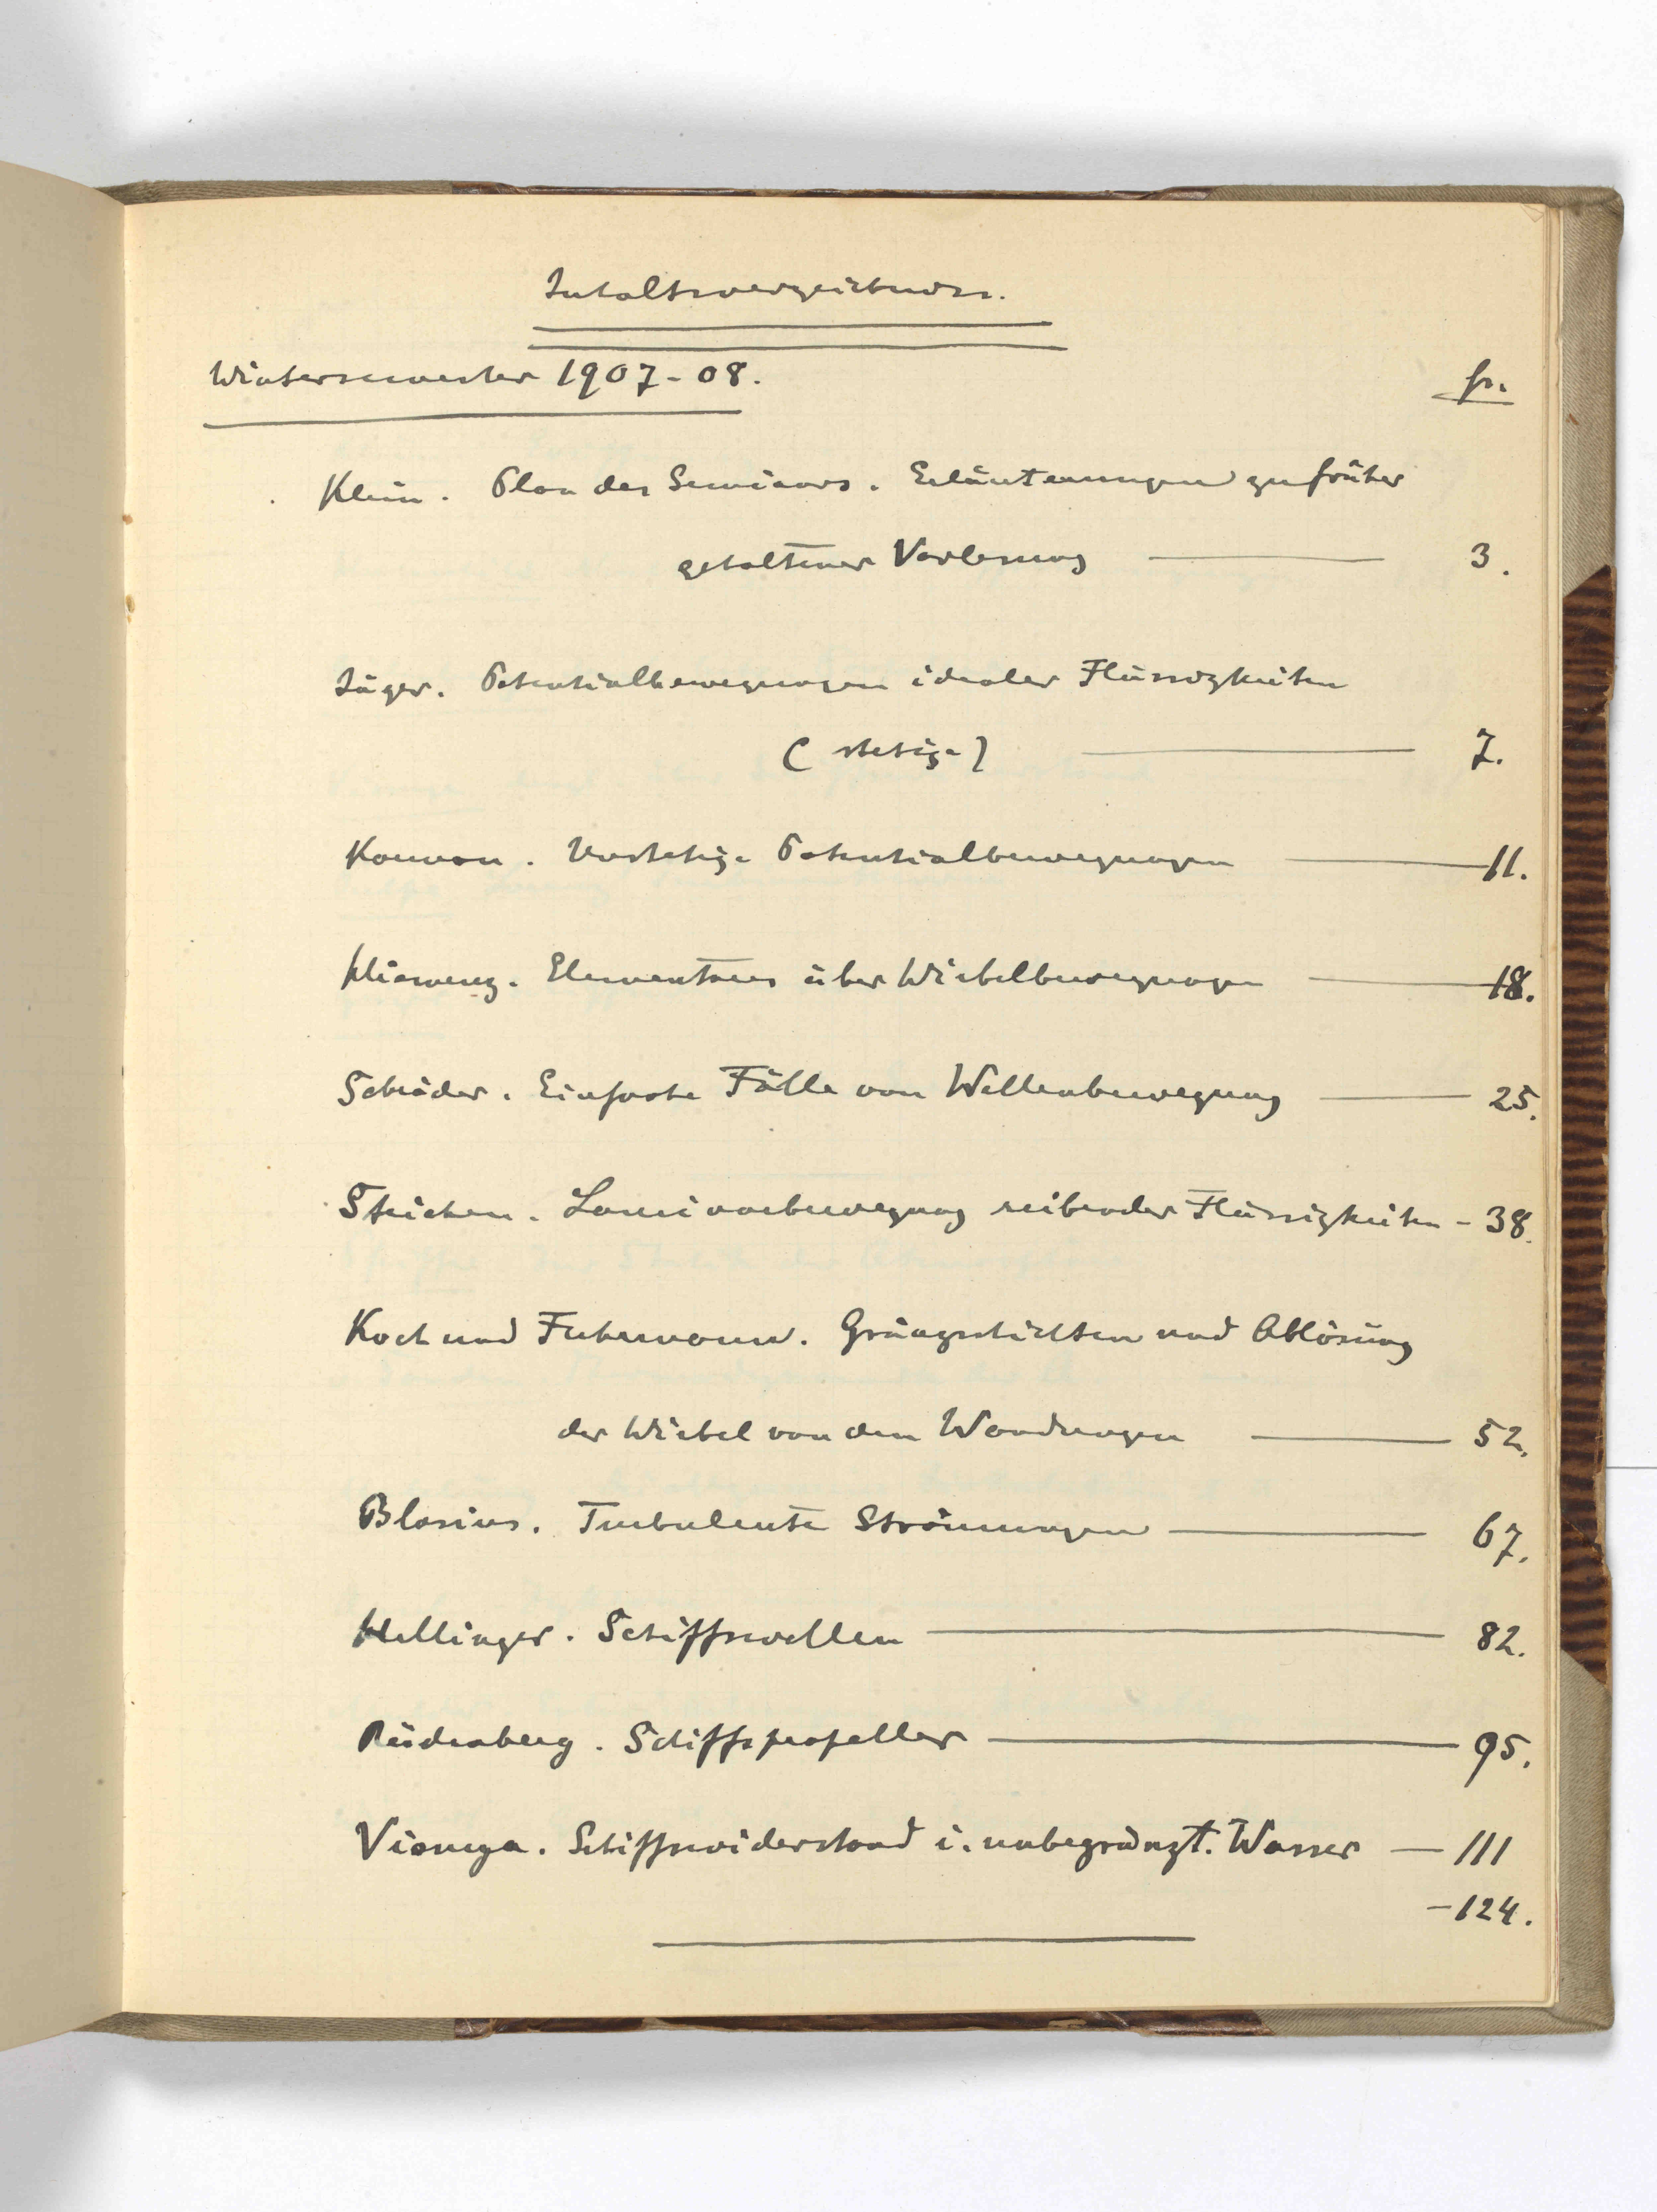 Inhaltsverzeichniss.
Wintersemester 1907-08. pr.
Klein. Plan des Seminars. Erläuterungen zu früher
gehaltener Vorlesung — 3.
Jäger. Potentialbewegungen idealer Flüssigkeiten
(stetige) — 7.
Unstetige Potentialbewegungen — 11.
Hiemenz. Elementares über Wirbelbewegungen — 18.
Schröder. Einfache Fälle von Wellenbewegung — 25.
Laminarbewegung reibender Flüssigkeiten - 38.
Koch und Fuhrmann. Gränzschichten und Ablösung
der Wirbel von den Wandungen — 52.
Blasius. Turbulente Strömungen — 67.
Hellinger. Schiffswellen — 82.
Rüdenberg. Schiffspropeller — 95.
Schiffswiderstand i. unbegränzt. Wasser — 111
-124.